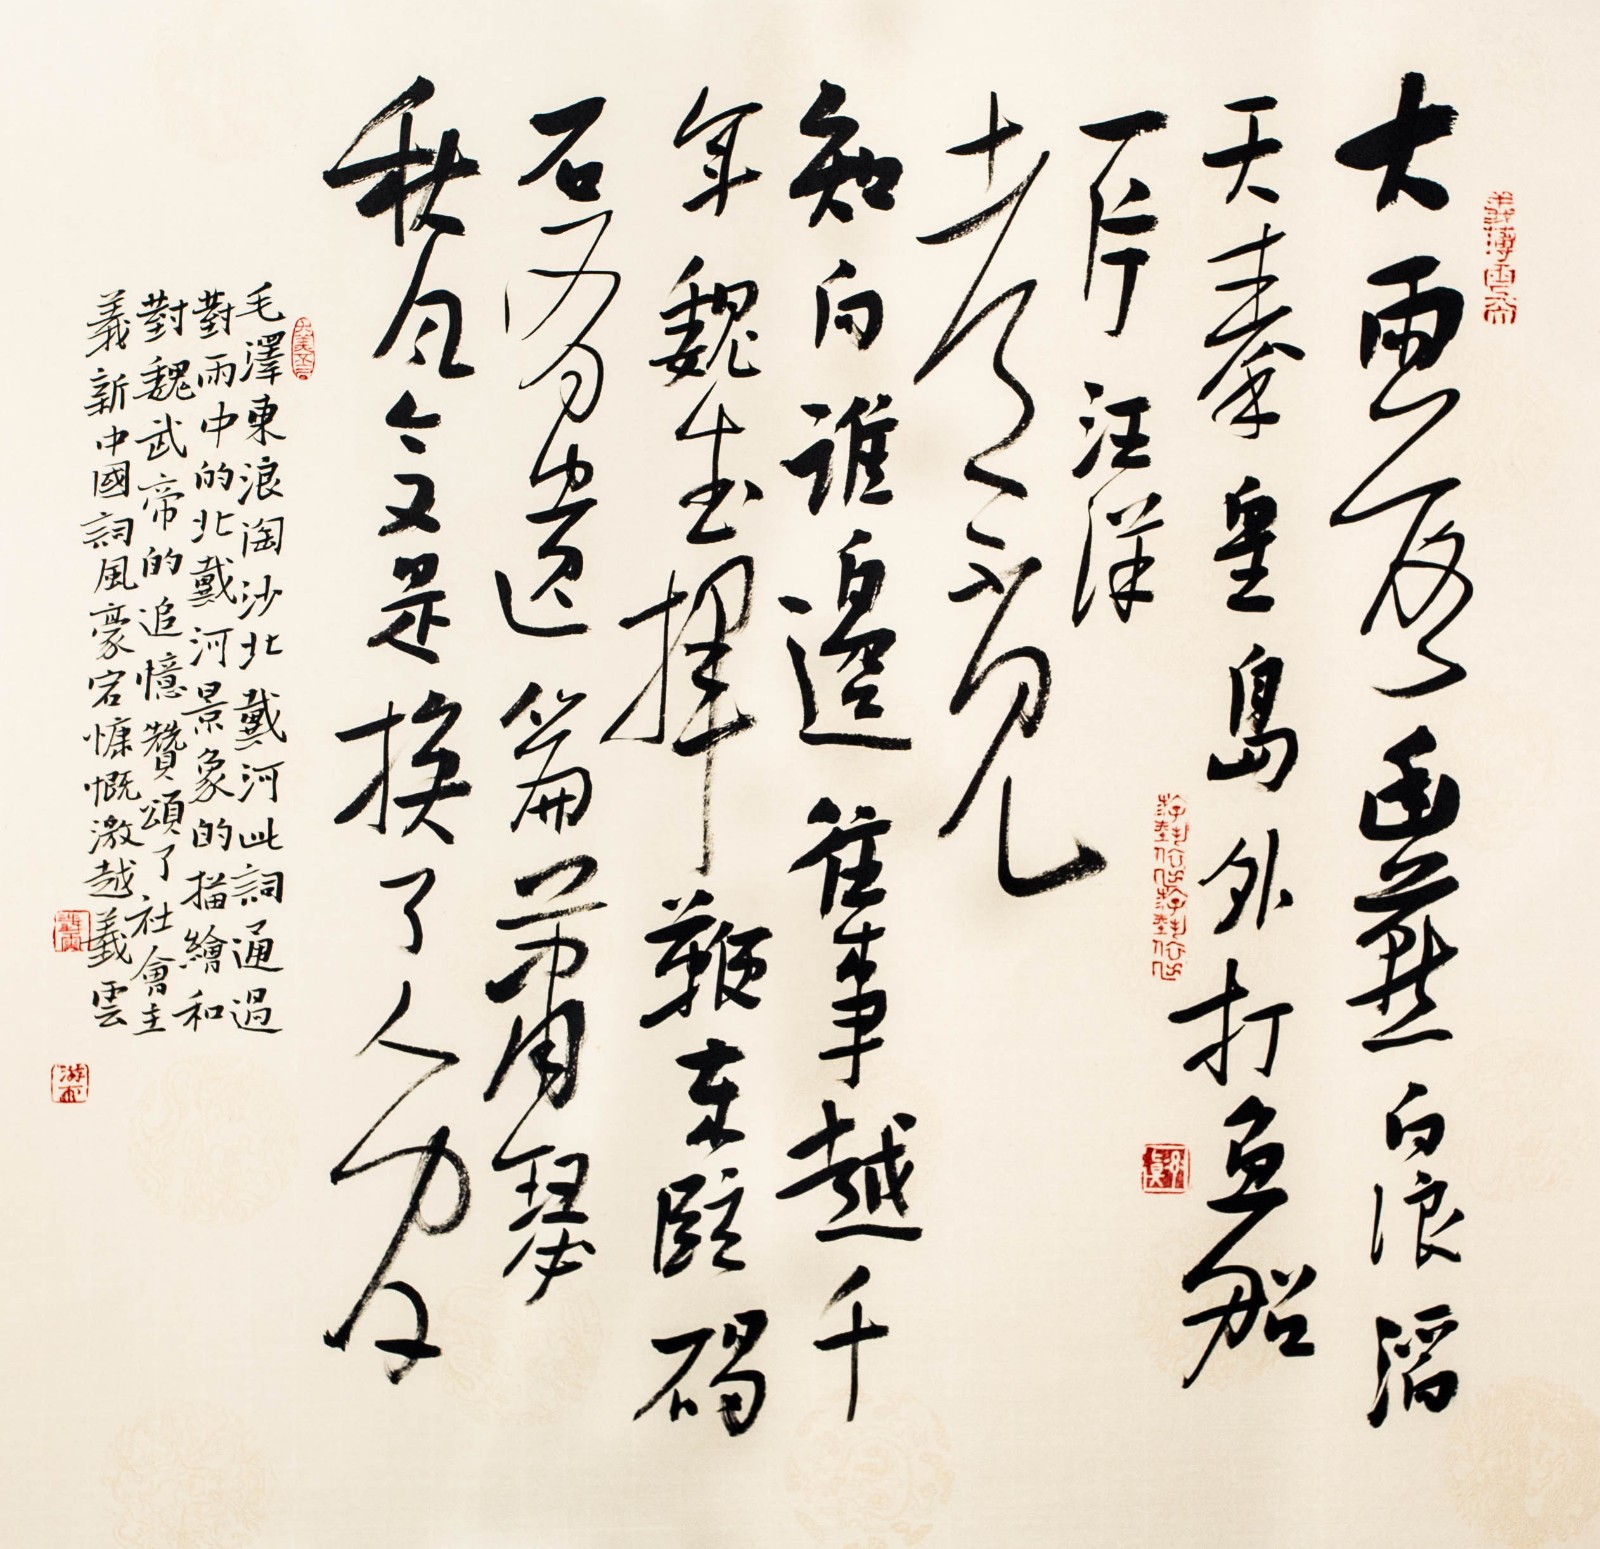 義薄雲天
大雨落幽燕白浪滔
天秦皇島外打魚船
一片汪洋
都不見
知向誰邊往事越千
年魏武揮鞭東臨碣
石有遺篇蕭瑟
秋風今又是換了人間
毛澤東浪淘沙北戴河此詞通過
對雨中的北戴河景象的描繪和
對魏武帝的追憶贊頌了社會主
義新中國詞風豪宕慷慨激越義雲